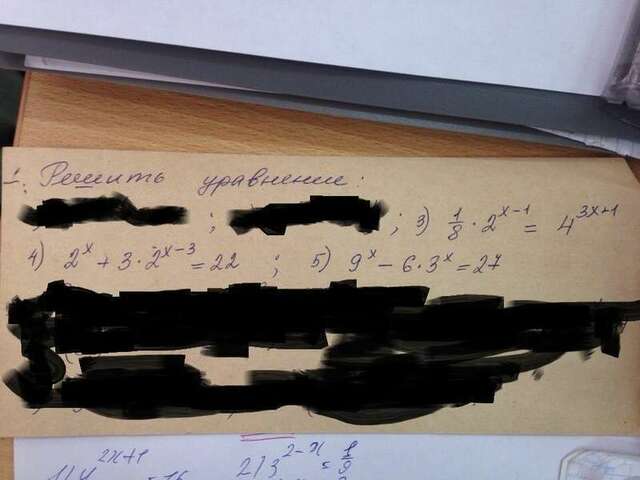 1. Решить уравнение:
; ; 3) 1/8 · 2^(x-1) = 4^(3x+1)
4) 2^x + 3 · 2^(x-3) = 22 ; 5) 9^x - 6 · 3^x = 27
2x+1
2) 3^(2-x) = 1/9